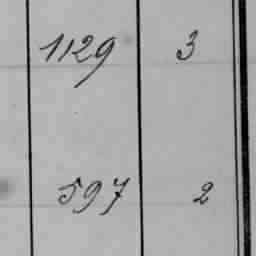 1129 3
597 2